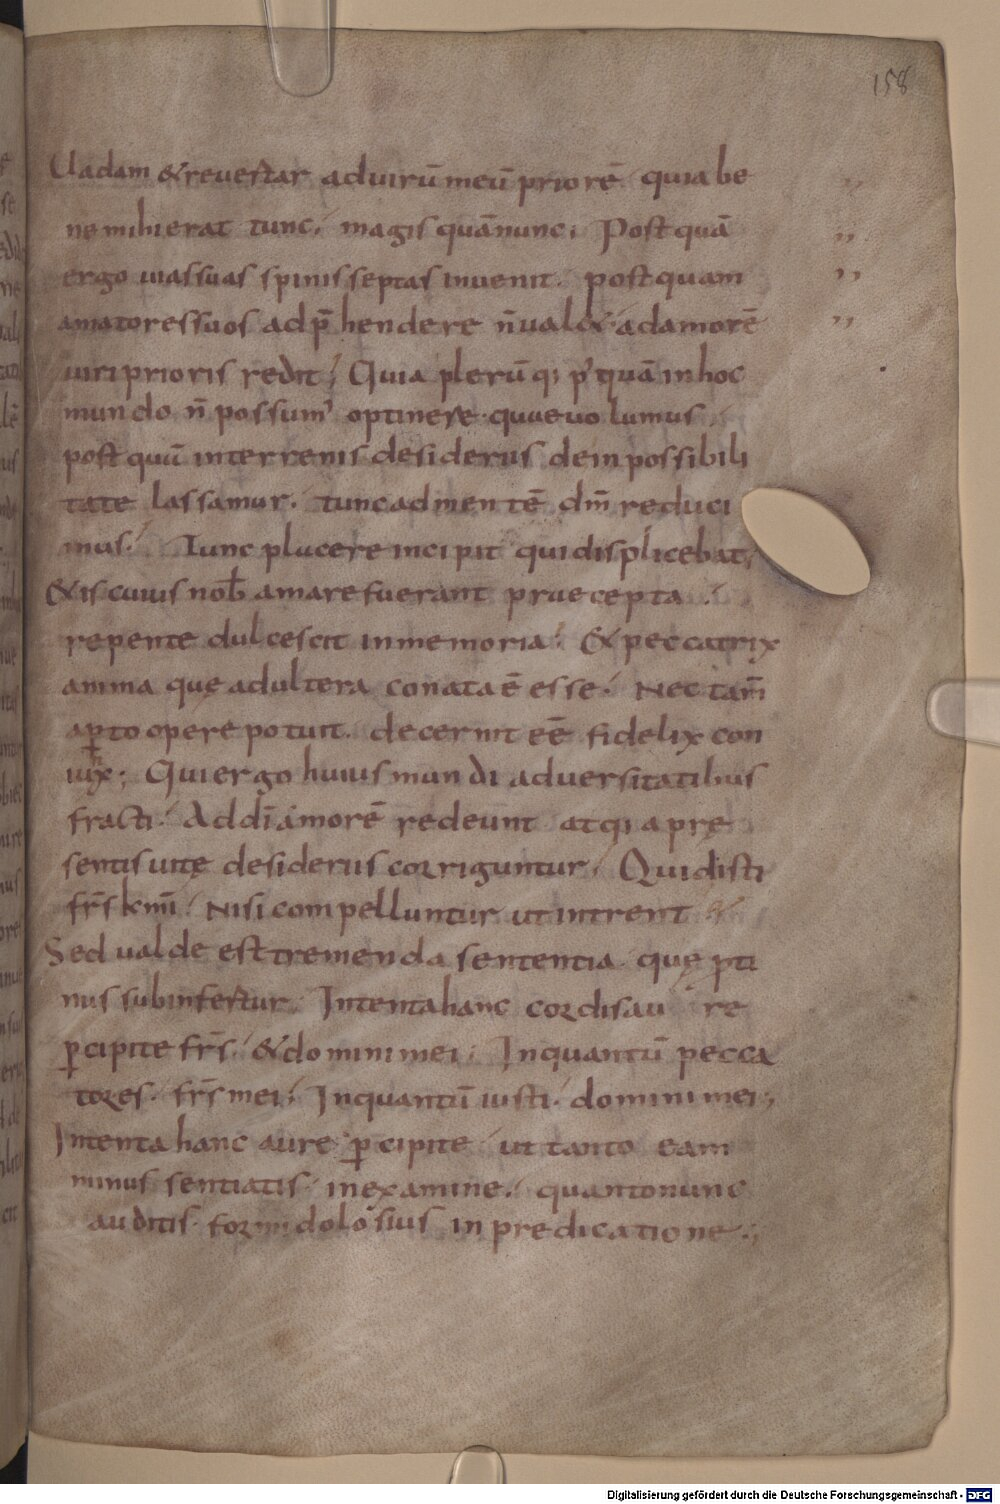 158
Uadam & reuertar ad uirū meū priorē quia be
ne mihi erat tunc; magis quā nunc; Post quā
ergo uias suas spinis septas inuenit. post quam
amatores suos adp̄hendere n̄ ual& ad amorē
uiri prioris redit; Quia plerūq; p'quā in hoc
mundo n̄ possum' optinere quae uolumus
post quā in terrenis desideriis de inpossibili
tate lassamur. tunc ad mentē dm̄ reduci
mus. Tunc placere incipit qui displicebat,
& is cuius nob̄ amare fuerant praecepta.
repente dulcescit in memoria. Et peccatrix
anima quę adultera conata ē esse. Nec tam̄
aꝑto opere potuit. decernit eē fidelix con
iux; Qui ergo huius mundi aduersitatibus
fracti. Ad dī amorē redeunt atq; a prę
sentis uitę desideriis corriguntur. Quid isti
fr̄s kmī. Nisi compelluntur ut intrent
Sed ualde est tremenda sententia quę ꝓti
nus subinfertur. Intenta hanc cordis au re
ꝑcipite fr̄s. & domini mei. Inquantū pecca
tores. fr̄s mei. Inquantū iusti. domini mei;
Intenta hanc aure ꝑcipite ut tanto eam
minus sentiatis in examine. quanto nunc
auditis formidolosius in predicatione.;
Digitalisierung gefördert durch die Deutsche Forschungsgemeinschaft - DFG